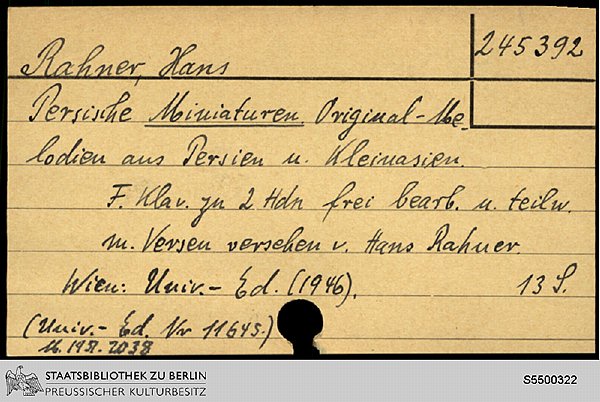 245392
Rahner, Hans
Persische Miniaturen. Original-Me-
lodien aus Persien u. Kleinasien.
F. Klav. zu 2 Hdn frei bearb. u. teilw.
m. Versen versehen v. Hans Rahner.
Wien: Univ.- Ed. (1946). 13 S.
(Univ.- Ed. Nr 11645.)
M. 1951. 2038
STAATSBIBLIOTHEK ZU BERLIN
PREUSSISCHER KULTURBESITZ
S5500322